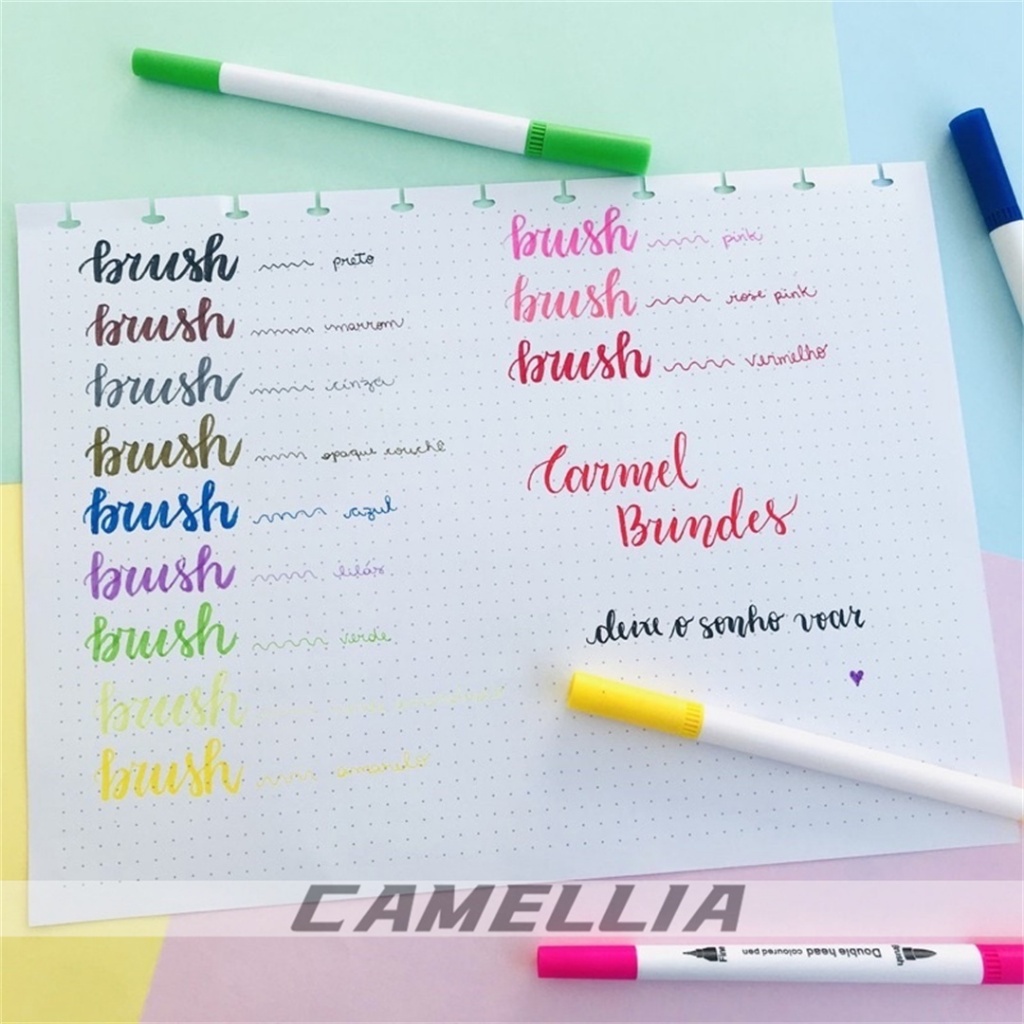 brush preto
brush marrom
brush cinza
brush opaqui couchê
brush azul
brush lilás
brush verde
brush
brush amarelo
brush pink
brush rose pink
brush vermelho
Carmel
Brindes
deixe o sonho voar
CAMELLIA
Fine Double head coloured pen Brush